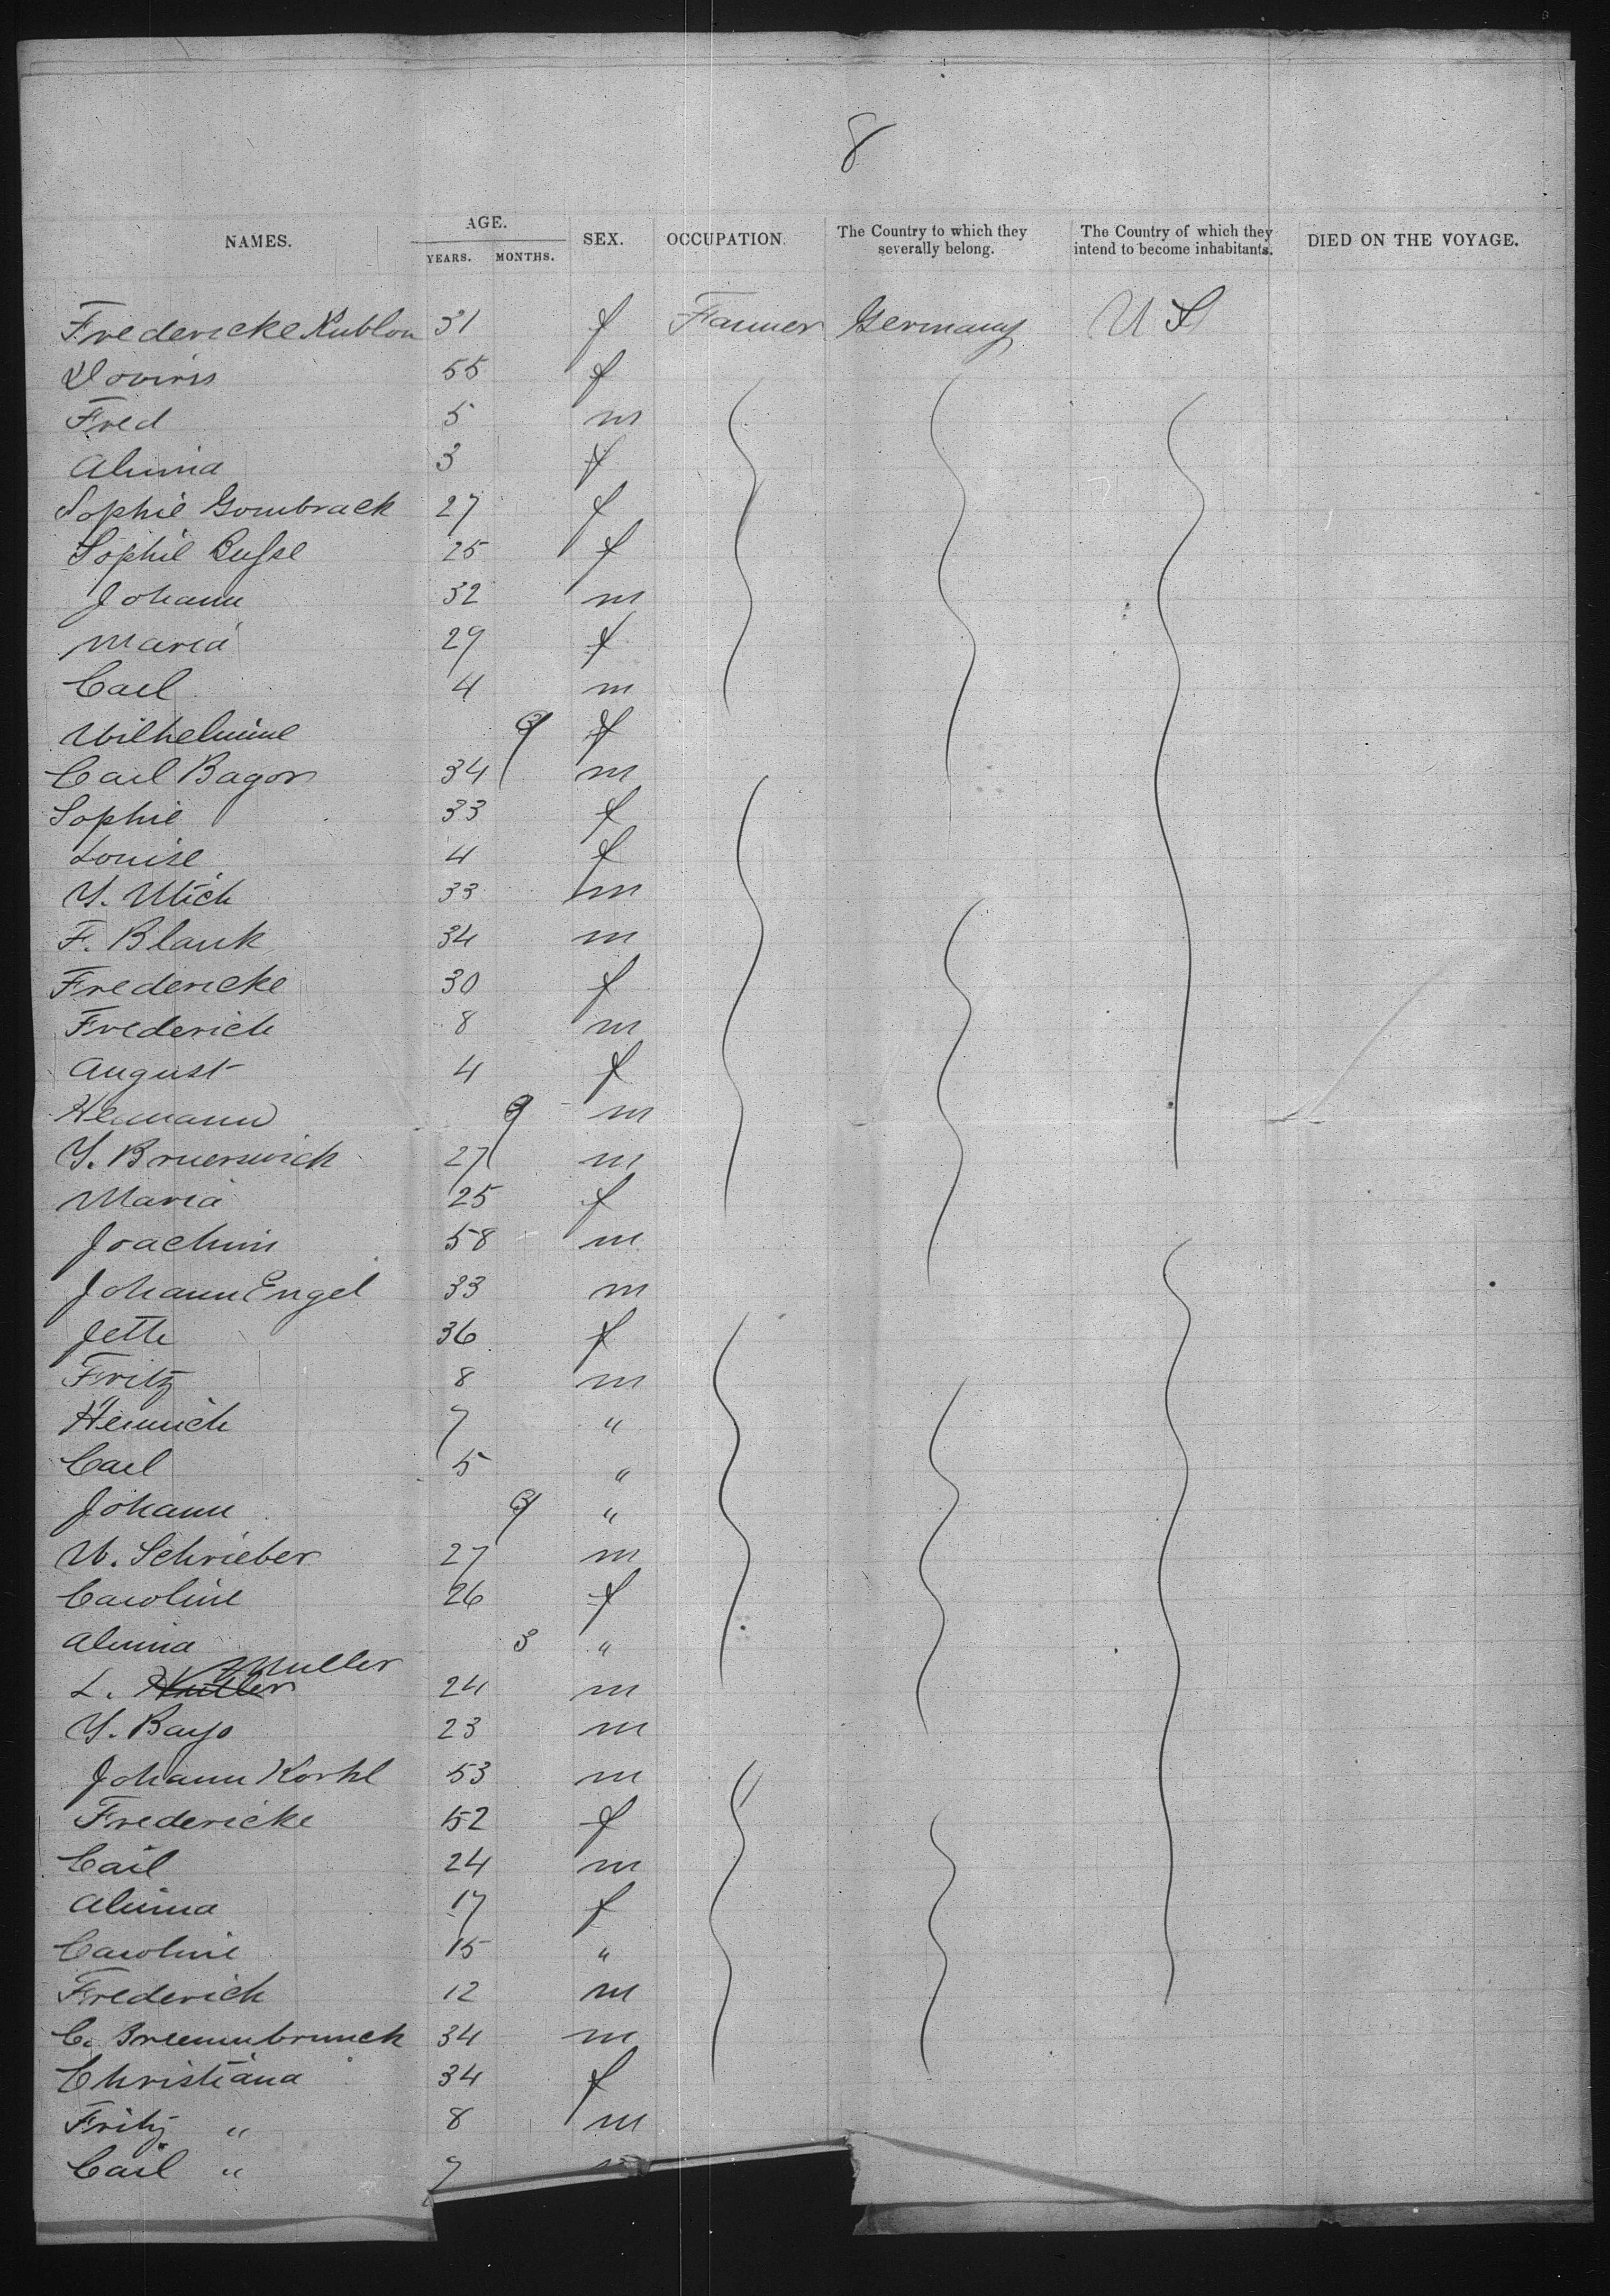 8
NAMES. AGE. YEARS. MONTHS. SEX. OCCUPATION. The Country to which they severally belong. The Country of which they intend to become inhabitants. DIED ON THE VOYAGE.
Fredericke Kublow 31 f Farmer Germany U S
55 f
Fred 5 m
Almina 3 f
Sophie Gombrack 27 f
Sophie Busse 25 f
Johann 32 m
Maria 29 f
Carl 4 m
Wilhelmine 9 f
Carl Bagon 34 m
Sophie 33 f
Louise 4 f
33 m
F. Blank 34 m
Fredericke 30 f
Frederich 8 m
August 4 f
Hermann 9 m
27 m
Maria 25 f
Joachim 58 m
Johann Engel 33 m
Jette 36 f
Fritz 8 m
Heinrich 7 "
Carl 5 "
Johann 9 "
W. Schrieber 27 m
Caroline 26 f
Almina 3 "
L. Muller 24 m
23 m
Johann 53 m
Fredericke 52 f
Carl 24 m
Almina 17 f
Caroline 15 "
Frederich 12 m
C. 34 m
Christiana 34 f
Fritz " 8 m
Carl " 7